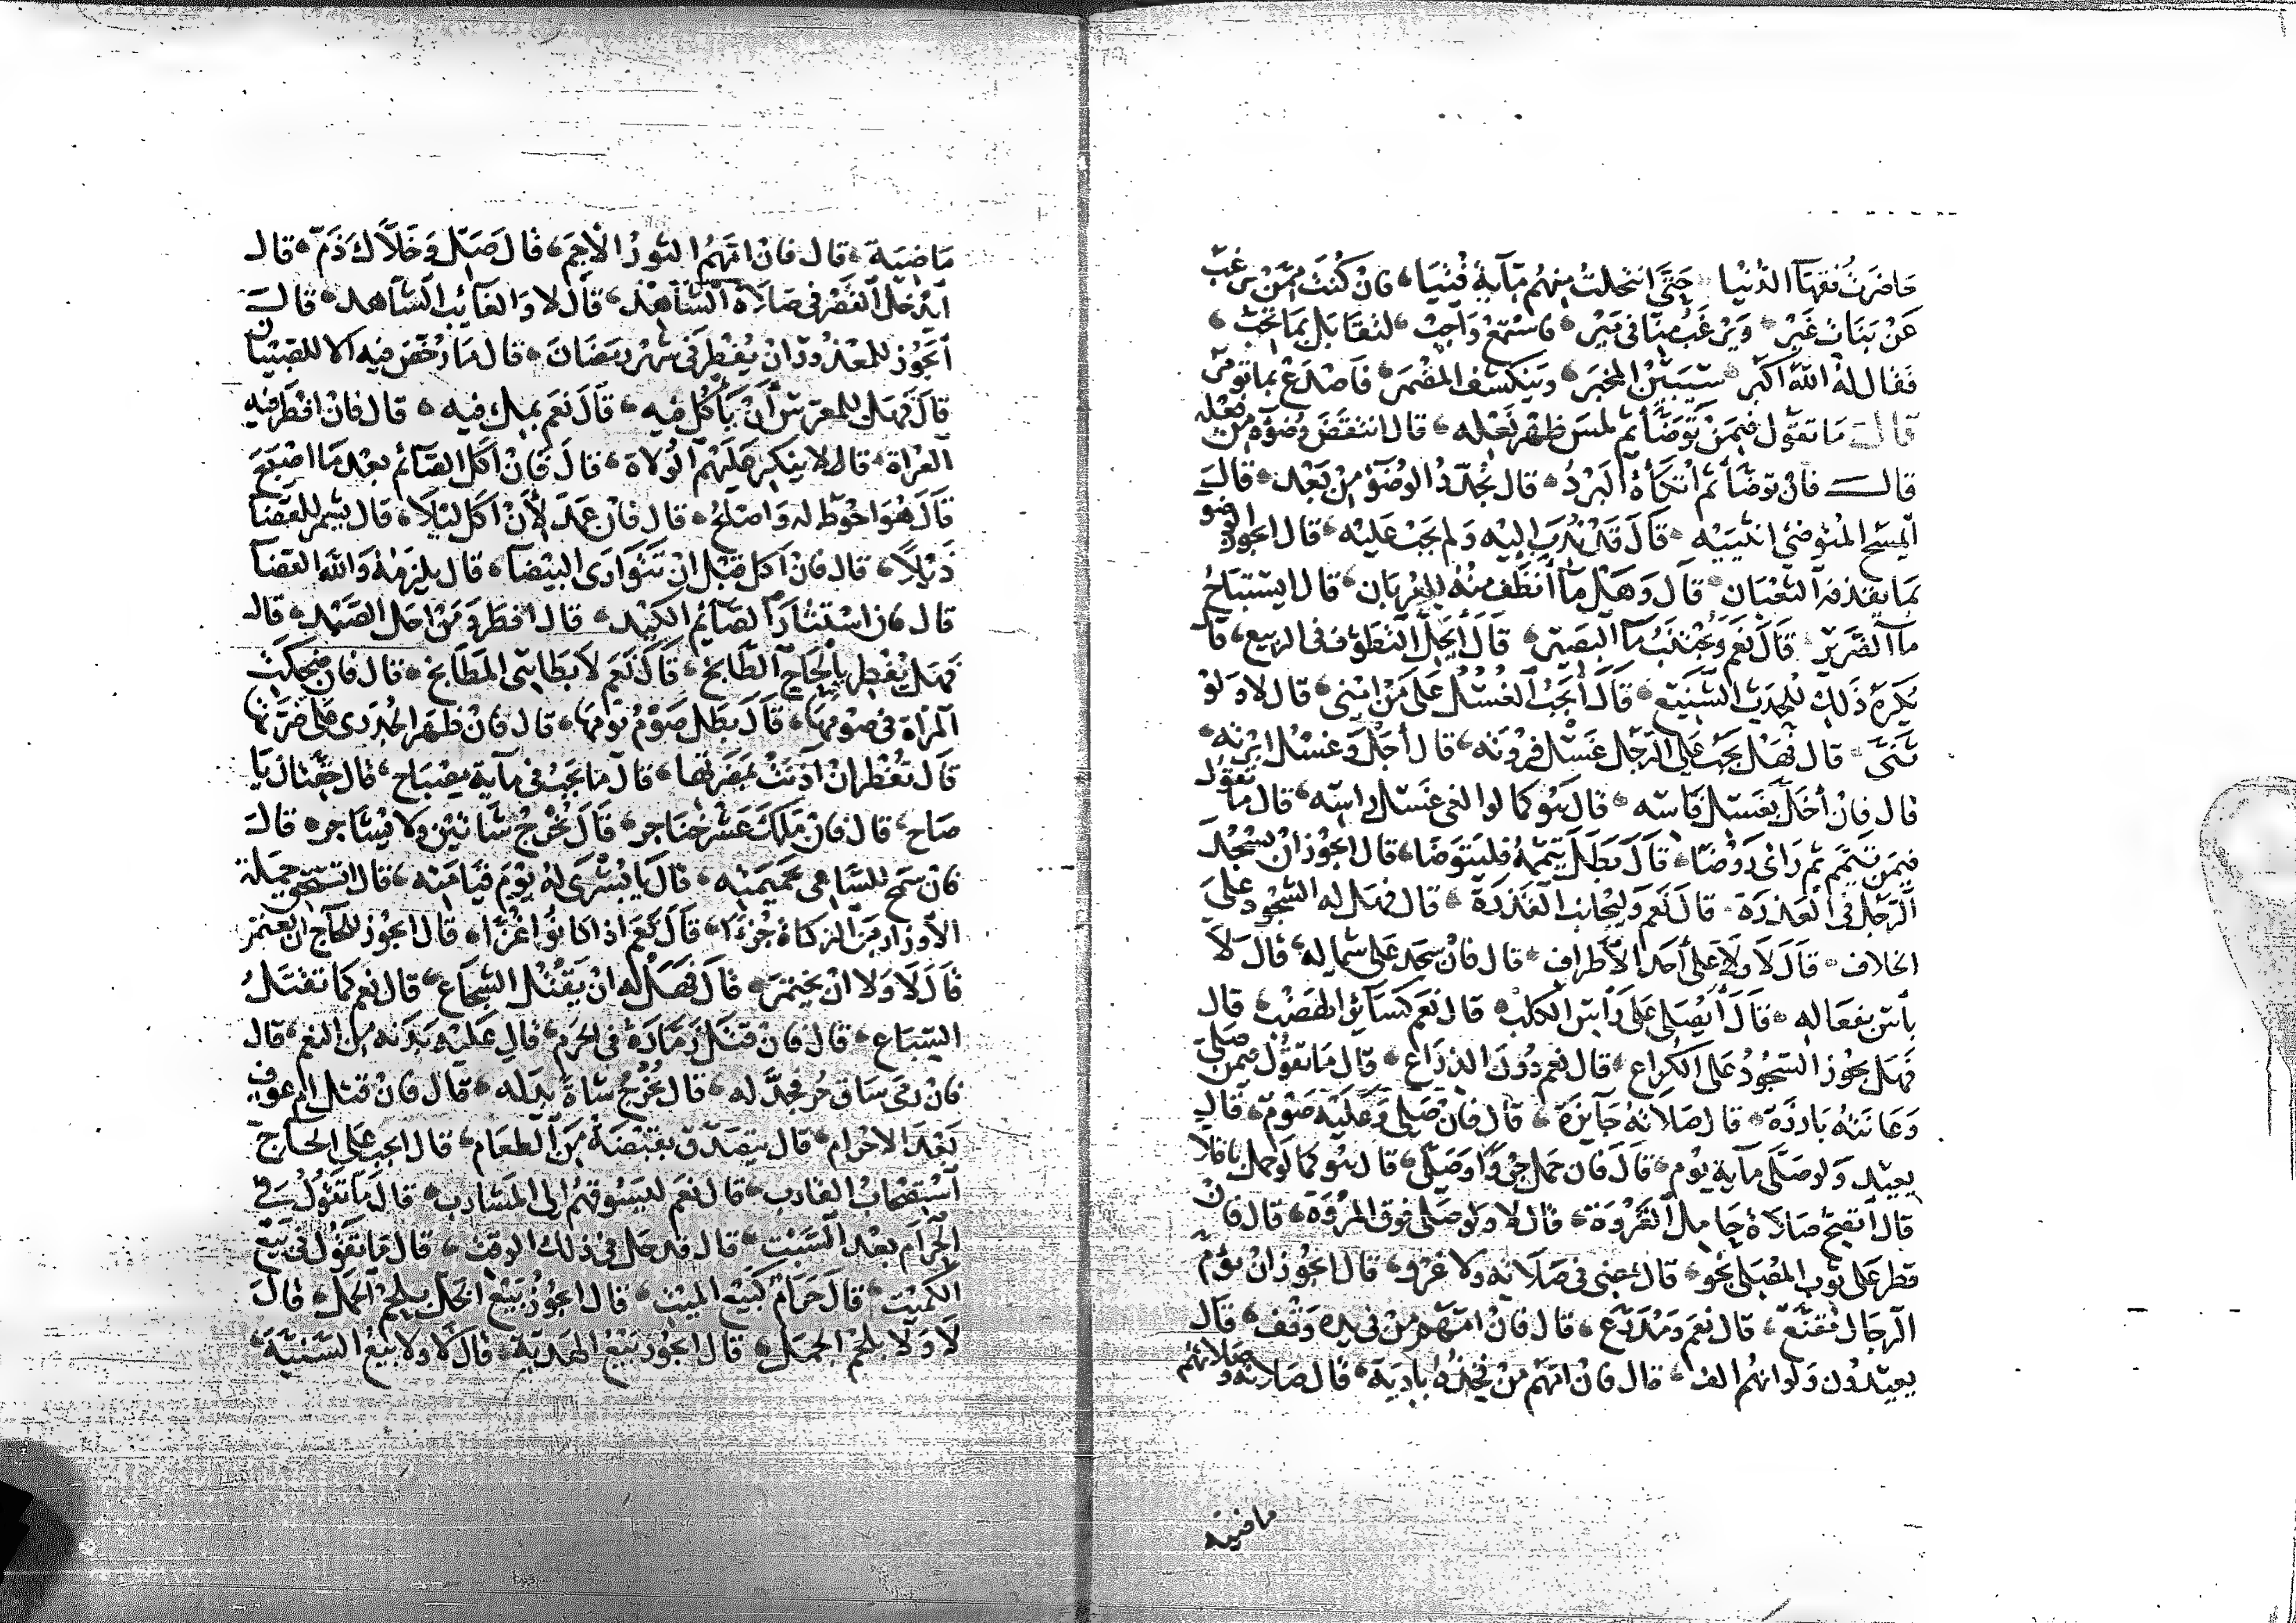 حاضرت فقهآ الدنيا حتى انتخلت منهم مآية فتيا فان كنت ممن يرغب
عن بنات غير ويرغب منا فى مير فاستمع واجب لتقابل بما تحب
فقال له الله اكبر سيبين المخبر وينكشف المضمر فاصدع بما تومر
قال ما تقول فيمن توضأ ثم لمس ظهر نعله قال انتقض وضوه من نعله
قال فان توضأ ثم اتكأه البرد قال يجدد الوضو من بعد قال
ايمسح المتوضى انثييه قال قد ندب اليه ولم يجب عليه قال ايجوز الوضو
بما يقذفه الثعبان قال وهل ما أنظف منه للعربان قال ايستباح
مآ الضرير قال نعم ويجتنب مآ البصير قال أيحل التطوف فى الربيع قال
يكره ذلك للحدث الشنيع قال أيجب الغسل على من امنى قال لا ولو
ثنى قال فهل يجب على الرجل غسل فروته قال أجل وغسل ابرته
قال فان أخل بغسل فاسه قال هو كما لو الغى غسل راسه قال ما تقول
فيمن تيمم ثم راى روضا قال بطل تيممه فليتوضا قال ايجوز ان يسجد
الرجل فى العذرة قال نعم وليجانب القذرة قال فهل له السجود على
الخلاف قال لا ولا على أحد الأطراف قال فان سجد على شماله قال لا
بأس بفعاله قال أيصلى على رأس الكلب قال نعم كسائر الهضب قال
فهل يجوز السجود على الكراع قال نعم دون الذراع قال ما تقول فيمن صلى
وعانته بارزة قال صلاته جآيزة قال فان صلى وعليه صوم قال
يعيد ولو صلى مآية يوم قال فان حمل جروا وصلى قال هو كما لو حمل باقلا
قال أتصح صلاة حامل القروة قال لا ولو صلى فوق المروة قال فان
قطر على ثوب المصلى نجو قال يمضى فى صلاته ولا غرو قال ايجوز ان يؤم
الرجال مقنع قال نعم ومدرع قال فان امهم من فى يده وقف قال
يعيدون ولو انهم الف قال فان امهم من فخذه بادية قال صلاته وصلاتهم
ماضية
ماضية قال فان امهم الثور الأجم قال صل وخلاك ذم قال
ايدخل القصر فى صلاة الشاهد قال لا والغائب الشاهد قال
أيجوز للمعذور ان يفطر فى شهر رمضان قال ما رخص فيه الا للصبيان
قال فهل للمعرس أن يأكل فيه قال نعم بملء فيه قال فان افطر فيه
العراة قال لا ينكر عليهم الولاة قال فان أكل الصآئم بعد ما اصبح
قال هو احوط له واصلح قال فان عمد لأن اكل ليلا قال يشمر للقضا
ذيلا قال فان اكل قبل ان تتوارى البيضا قال يلزمه والله القضآ
قال فان استثار الصآئم الكيد قال افطر ومن احل الصيد قال
فهل يفطر بإلحاح الطابخ قال نعم لا بطاهى المطابخ قال فان ضحكت
المرأة فى صومها قال بطل صوم يومها قال فان ظهر الجدرى على ضرتها
قال تفطر ان آذنت بمضرتها قال ما يجب فى مآية مصباح قال حقتان يا
صاح قال فان ملك عشر خناجر قال يخرج شاتين ولا يشاجر قال
فان سمح للساعى بحميمته قال يا بشرى له يوم قيامته قال ايستحق حملة
الأوزار من الزكاة جزءا قال نعم اذا كانوا غزا قال ايجوز للحاج ان يعتمر
قال لا ولا ان يختمر قال فهل له ان يقتل الشجاع قال نعم كما تقتل
السباع قال فان قتل زمارة فى الحرم قال عليه بدنة من النعم قال
فان رمى ساق حر فجدله قال يخرج شاة بدله قال فان قتل ام عوف
بعد الاحرام قال يتصدق بقبضة من الطعام قال ايجب على الحاج
استصحاب القارب قال نعم ليسوقهم الى المشارب قال ما تقول فى
الحرام بعد السبت قال قد حل فى ذلك الوقت قال ما تقول فى بيع
الكميت قال حرام كبيع الميت قال ايجوز بيع الخل بلحم الحمل قال
لا ولا بلحم الجمل قال ايجوز بيع الهدية قال لا ولا بيع السبية